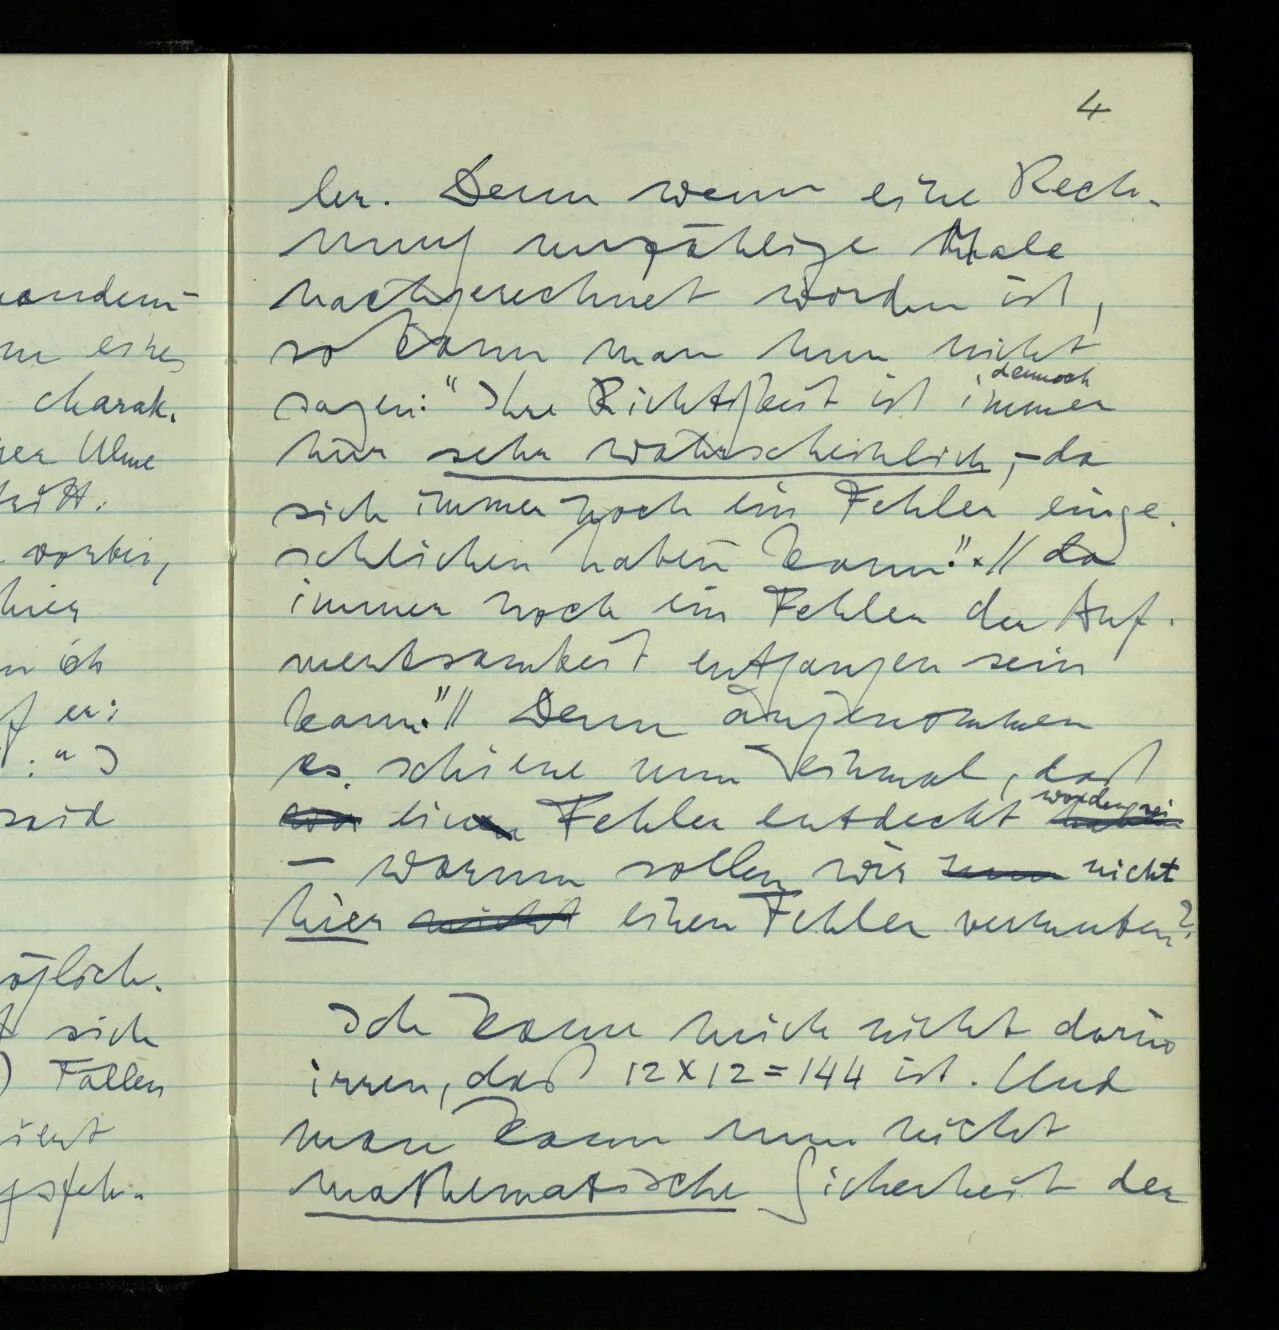 4
ler. Denn wenn eine Rech-
nung unzählige Male
nachgerechnet worden ist,
so kann man nun nicht
sagen: "Ihre Richtigkeit ist dennoch immer
nur sehr wahrscheinlich, – da
sich immer noch ein Fehler einge-
schlichen haben kann". // da
immer noch ein Fehler der Auf-
merksamkeit entgangen sein
kann." // Denn angenommen
es schiene nun einmal, daß
ein Fehler entdeckt worden sei
– warum sollen wir nicht
hier einen Fehler vermuten?
Ich kann mich nicht darin
irren, daß 12 x 12 = 144 ist. Und
man kann nun nicht
mathematische Sicherheit der
eines
charak-
Ulme
vorbei,
hier
ich
er:
said
öglich.
sich
Fällen